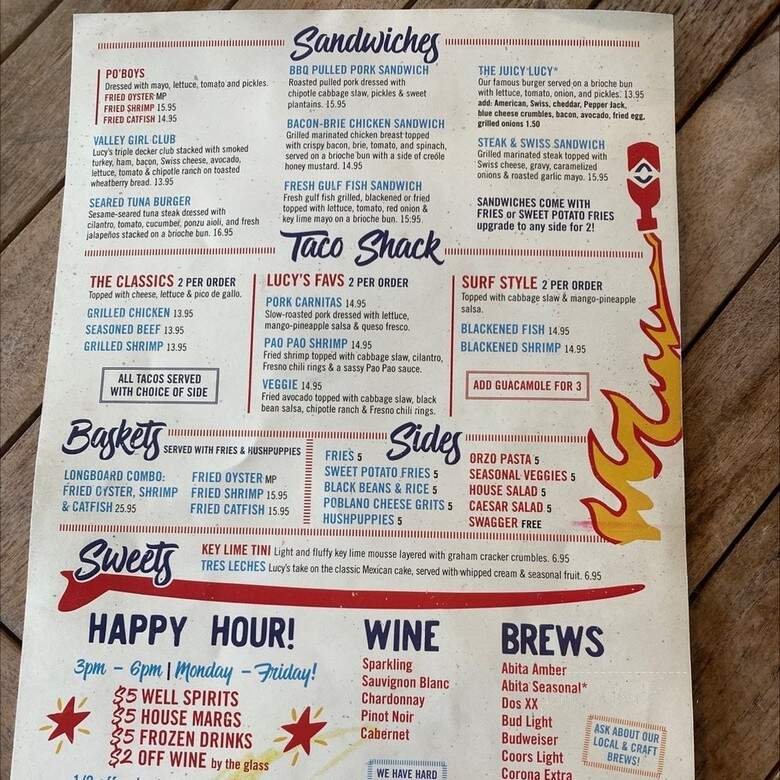 Sandwiches
PO'BOYS
Dressed with mayo, lettuce, tomato and pickles.
FRIED OYSTER MP
FRIED SHRIMP 15.95
FRIED CATFISH 14.95
VALLEY GIRL CLUB
Lucy's triple decker club stacked with smoked
turkey, ham, bacon, Swiss cheese, avocado,
lettuce, tomato & chipotle ranch on toasted
wheatberry bread. 13.95
SEARED TUNA BURGER
Sesame-seared tuna steak dressed with
cilantro, tomato, cucumber, ponzu aioli, and fresh
jalapeños stacked on a brioche bun. 16.95
BBQ PULLED PORK SANDWICH
Roasted pulled pork dressed with
chipotle cabbage slaw, pickles & sweet
plantains. 15.95
BACON-BRIE CHICKEN SANDWICH
Grilled marinated chicken breast topped
with crispy bacon, brie, tomato, and spinach,
served on a brioche bun with a side of creole
honey mustard. 14.95
FRESH GULF FISH SANDWICH
Fresh gulf fish grilled, blackened or fried
topped with lettuce, tomato, red onion &
key lime mayo on a brioche bun. 15.95.
THE JUICY LUCY*
Our famous burger served on a brioche bun
with lettuce, tomato, onion, and pickles. 13.95
add: American, Swiss, cheddar, Pepper Jack,
blue cheese crumbles, bacon, avocado, fried egg,
grilled onions 1.50
STEAK & SWISS SANDWICH
Grilled marinated steak topped with
Swiss cheese, gravy, caramelized
onions & roasted garlic mayo. 15.95
SANDWICHES COME WITH
FRIES or SWEET POTATO FRIES
upgrade to any side for 2!
Taco Shack
THE CLASSICS 2 PER ORDER
Topped with cheese, lettuce & pico de gallo.
GRILLED CHICKEN 13.95
SEASONED BEEF 13.95
GRILLED SHRIMP 13.95
ALL TACOS SERVED
WITH CHOICE OF SIDE
LUCY'S FAVS 2 PER ORDER
PORK CARNITAS 14.95
Slow-roasted pork dressed with lettuce,
mango-pineapple salsa & queso fresco.
PAO PAO SHRIMP 14.95
Fried shrimp topped with cabbage slaw, cilantro,
Fresno chili rings & a sassy Pao Pao sauce.
VEGGIE 14.95
Fried avocado topped with cabbage slaw, black
bean salsa, chipotle ranch & Fresno chili rings.
SURF STYLE 2 PER ORDER
Topped with cabbage slaw & mango-pineapple
salsa.
BLACKENED FISH 14.95
BLACKENED SHRIMP 14.95
ADD GUACAMOLE FOR 3
Baskets SERVED WITH FRIES & HUSHPUPPIES
LONGBOARD COMBO:
FRIED OYSTER, SHRIMP
& CATFISH 25.95
FRIED OYSTER MP
FRIED SHRIMP 15.95
FRIED CATFISH 15.95
Sides
FRIES 5
SWEET POTATO FRIES 5
BLACK BEANS & RICE 5
POBLANO CHEESE GRITS 5
HUSHPUPPIES 5
ORZO PASTA 5
SEASONAL VEGGIES 5
HOUSE SALAD 5
CAESAR SALAD 5
SWAGGER FREE
Sweets
KEY LIME TINI Light and fluffy key lime mousse layered with graham cracker crumbles. 6.95
TRES LECHES Lucy's take on the classic Mexican cake, served with whipped cream & seasonal fruit. 6.95
HAPPY HOUR!
3pm – 6pm | Monday – Friday!
$5 WELL SPIRITS
$5 HOUSE MARGS
$5 FROZEN DRINKS
$2 OFF WINE by the glass
WINE
Sparkling
Sauvignon Blanc
Chardonnay
Pinot Noir
Cabernet
WE HAVE HARD
BREWS
Abita Amber
Abita Seasonal*
Dos XX
Bud Light
Budweiser
Coors Light
Corona Extra
ASK ABOUT OUR
LOCAL & CRAFT
BREWS!